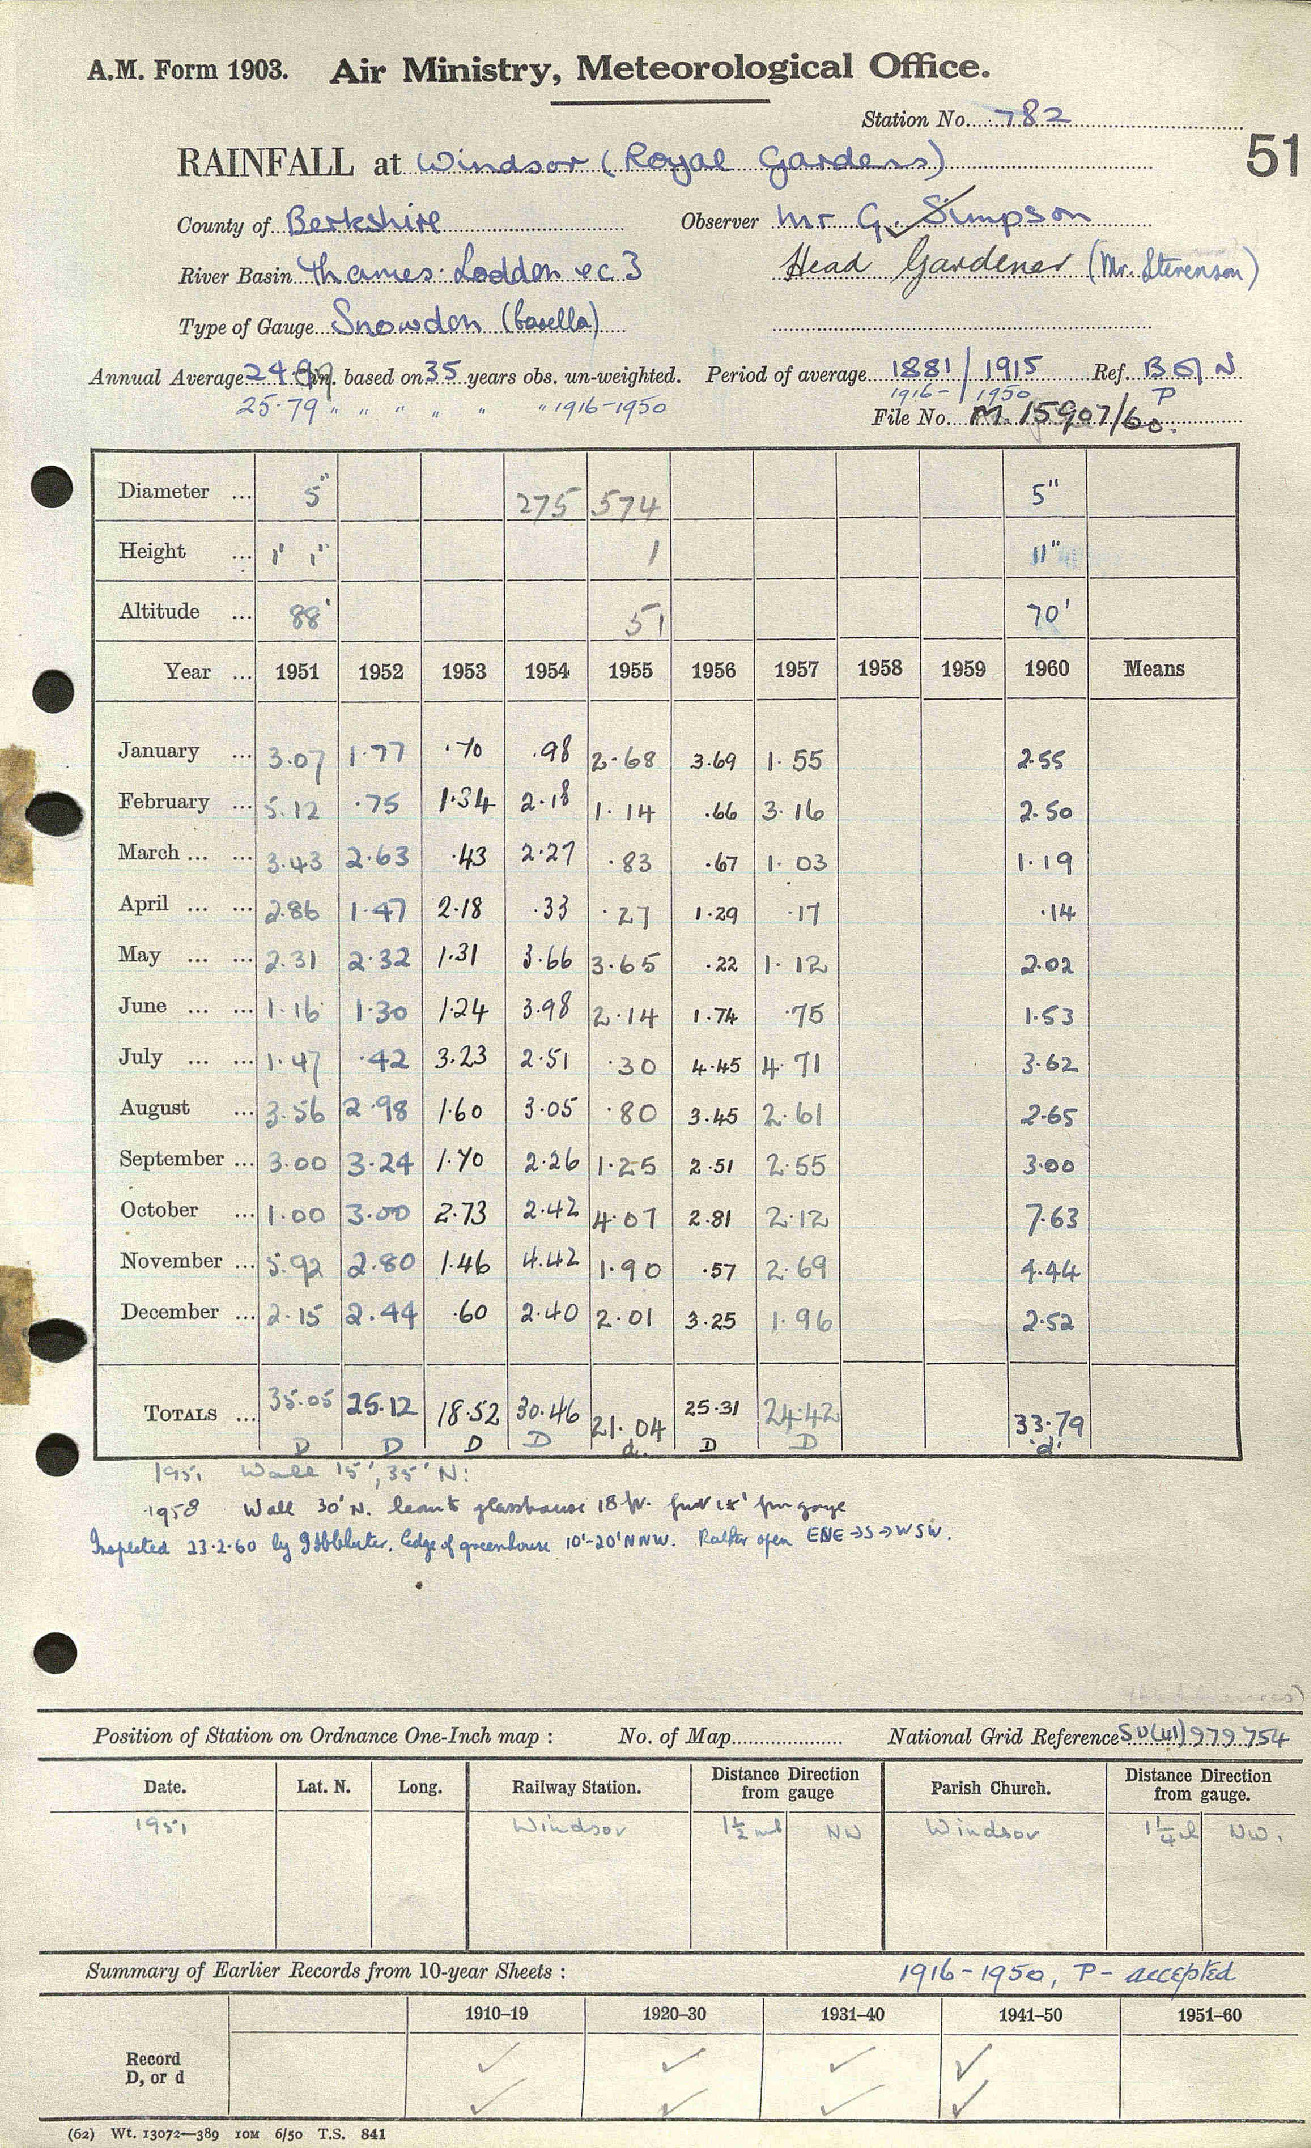 A.M. Form 1903. Air Ministry, Meteorological Office.
Station No. 782
51
RAINFALL at Windsor (Royal Gardens)
County of Berkshire Observer Mr G. Simpson
River Basin Thames: Loddon ec 3 Head Gardener (Mr. Stevenson)
Type of Gauge Snowdon (Casella)
Annual Average 24. in. based on 35 years obs. un-weighted. Period of average 1881/1915 Ref. B N
25.79 " " " " " " 1916-1950 1916-/1950 P
File No. M. 15907/60.
Diameter ... 5" 275 574 5"
Height ... 1' 1" 1 11"
Altitude ... 88' 51 70'
Year ... 1951 1952 1953 1954 1955 1956 1957 1958 1959 1960 Means
January ... 3.07 1.77 .70 .98 2.68 3.69 1.55 2.55
February ... 5.12 .75 1.34 2.18 1.14 .66 3.16 2.50
March ... ... 3.43 2.63 .43 2.27 .83 .67 1.03 1.19
April ... ... 2.86 1.47 2.18 .33 .27 1.29 .17 .14
May ... ... 2.31 2.32 1.31 3.66 3.65 .22 1.12 2.02
June ... ... 1.16 1.30 1.24 3.98 2.14 1.74 .75 1.53
July ... ... 1.47 .42 3.23 2.51 .30 4.45 4.71 3.62
August ... 3.56 2.98 1.60 3.05 .80 3.45 2.61 2.65
September ... 3.00 3.24 1.70 2.26 1.25 2.51 2.55 3.00
October ... 1.00 3.00 2.73 2.42 4.07 2.81 2.12 7.63
November ... 5.92 2.80 1.46 4.42 1.90 .57 2.69 4.44
December ... 2.15 2.44 .60 2.40 2.01 3.25 1.96 2.52
TOTALS ... 35.05 25.12 18.52 30.46 21.04 25.31 24.42 33.79
D D D D d. D D 'd'
1951 Wall 15', 35' N:
1958 Wall 30' N. leanto glasshouse 18 ft. from gauge
Inspected 23.2.60 by Edge of greenhouse 10'-20' NNW. Rather open ENE→S→WSW.
Position of Station on Ordnance One-Inch map : No. of Map National Grid Reference SU(41)979754
Date. Lat. N. Long. Railway Station. Distance Direction from gauge Parish Church. Distance Direction from gauge.
1951 Windsor 1½ ml NW Windsor 1¼ ml NW.
Summary of Earlier Records from 10-year Sheets : 1916-1950, P- accepted
1910–19 1920–30 1931–40 1941–50 1951–60
Record
D, or d
(62) Wt. 13072—389 10M 6/50 T.S. 841